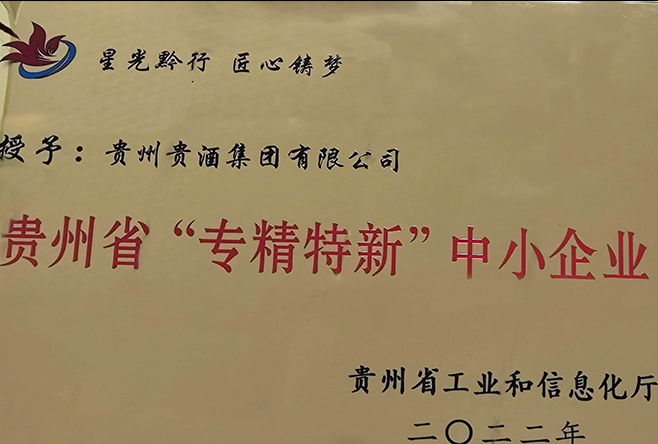 星光黔行 匠心铸梦
授予：贵州贵酒集团有限公司
贵州省“专精特新”中小企业
贵州省工业和信息化厅
二〇二二年